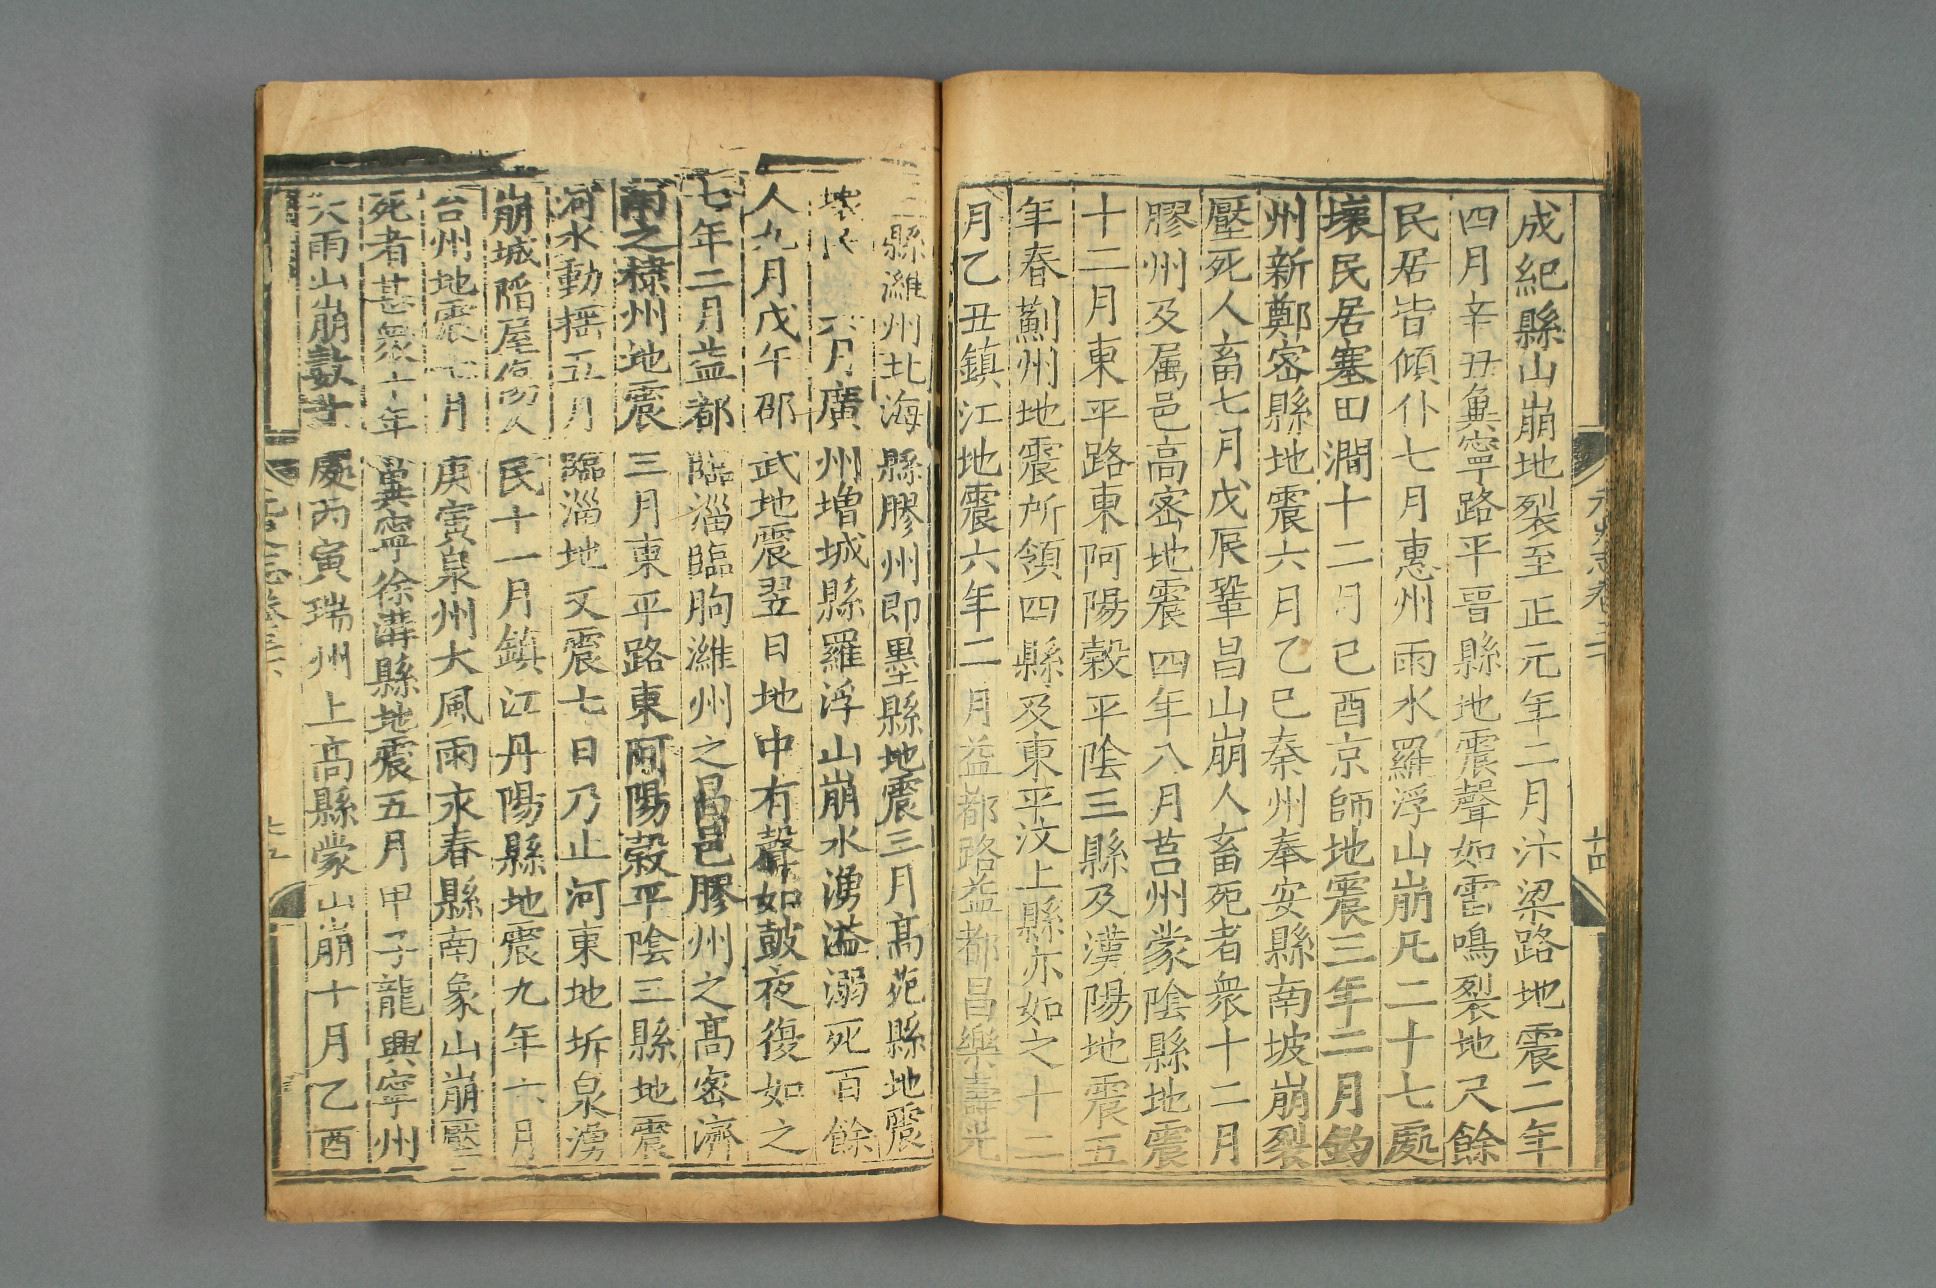 成紀縣山崩地裂至正元年二月汴梁路地震二年
四月辛丑冀寧路平晉縣地震聲如雷鳴裂地尺餘
民居皆傾仆七月惠州雨水羅浮山崩凡二十七處
壞民居塞田澗十二月己酉京師地震三年二月鈞
州新鄭密縣地震六月乙巳秦州奉安縣南坡崩裂
壓死人畜七月戊辰鞏昌山崩人畜死者衆十二月
膠州及属邑高密地震四年八月莒州蒙陰縣地震
十二月東平路東阿陽穀平陰三縣及漢陽地震五
年春薊州地震所領四縣及東平汶上縣亦如之十二
月乙丑鎮江地震六年二月益都路益都昌樂壽光
三縣濰州北海縣膠州即墨縣地震三月高苑縣地震
壞民六月廣州増城縣羅浮山崩水湧溢溺死百餘
人九月戊午邵武地震翌日地中有聲如鼓夜復如之
七年二月益都臨淄臨朐濰州之昌邑膠州之高密濟
南之棣州地震三月東平路東阿陽穀平陰三縣地震
河水動揺五月臨淄地又震七日乃止河東地坼泉湧
崩城陷屋傷人民十一月鎮江丹陽縣地震九年六月
台州地震七月庚寅泉州大風雨永春縣南象山崩壓
死者甚衆十年冀寧徐溝縣地震五月甲子龍興寧州
大雨山崩數十處丙寅瑞州上高縣蒙山崩十月乙酉
十四
十五